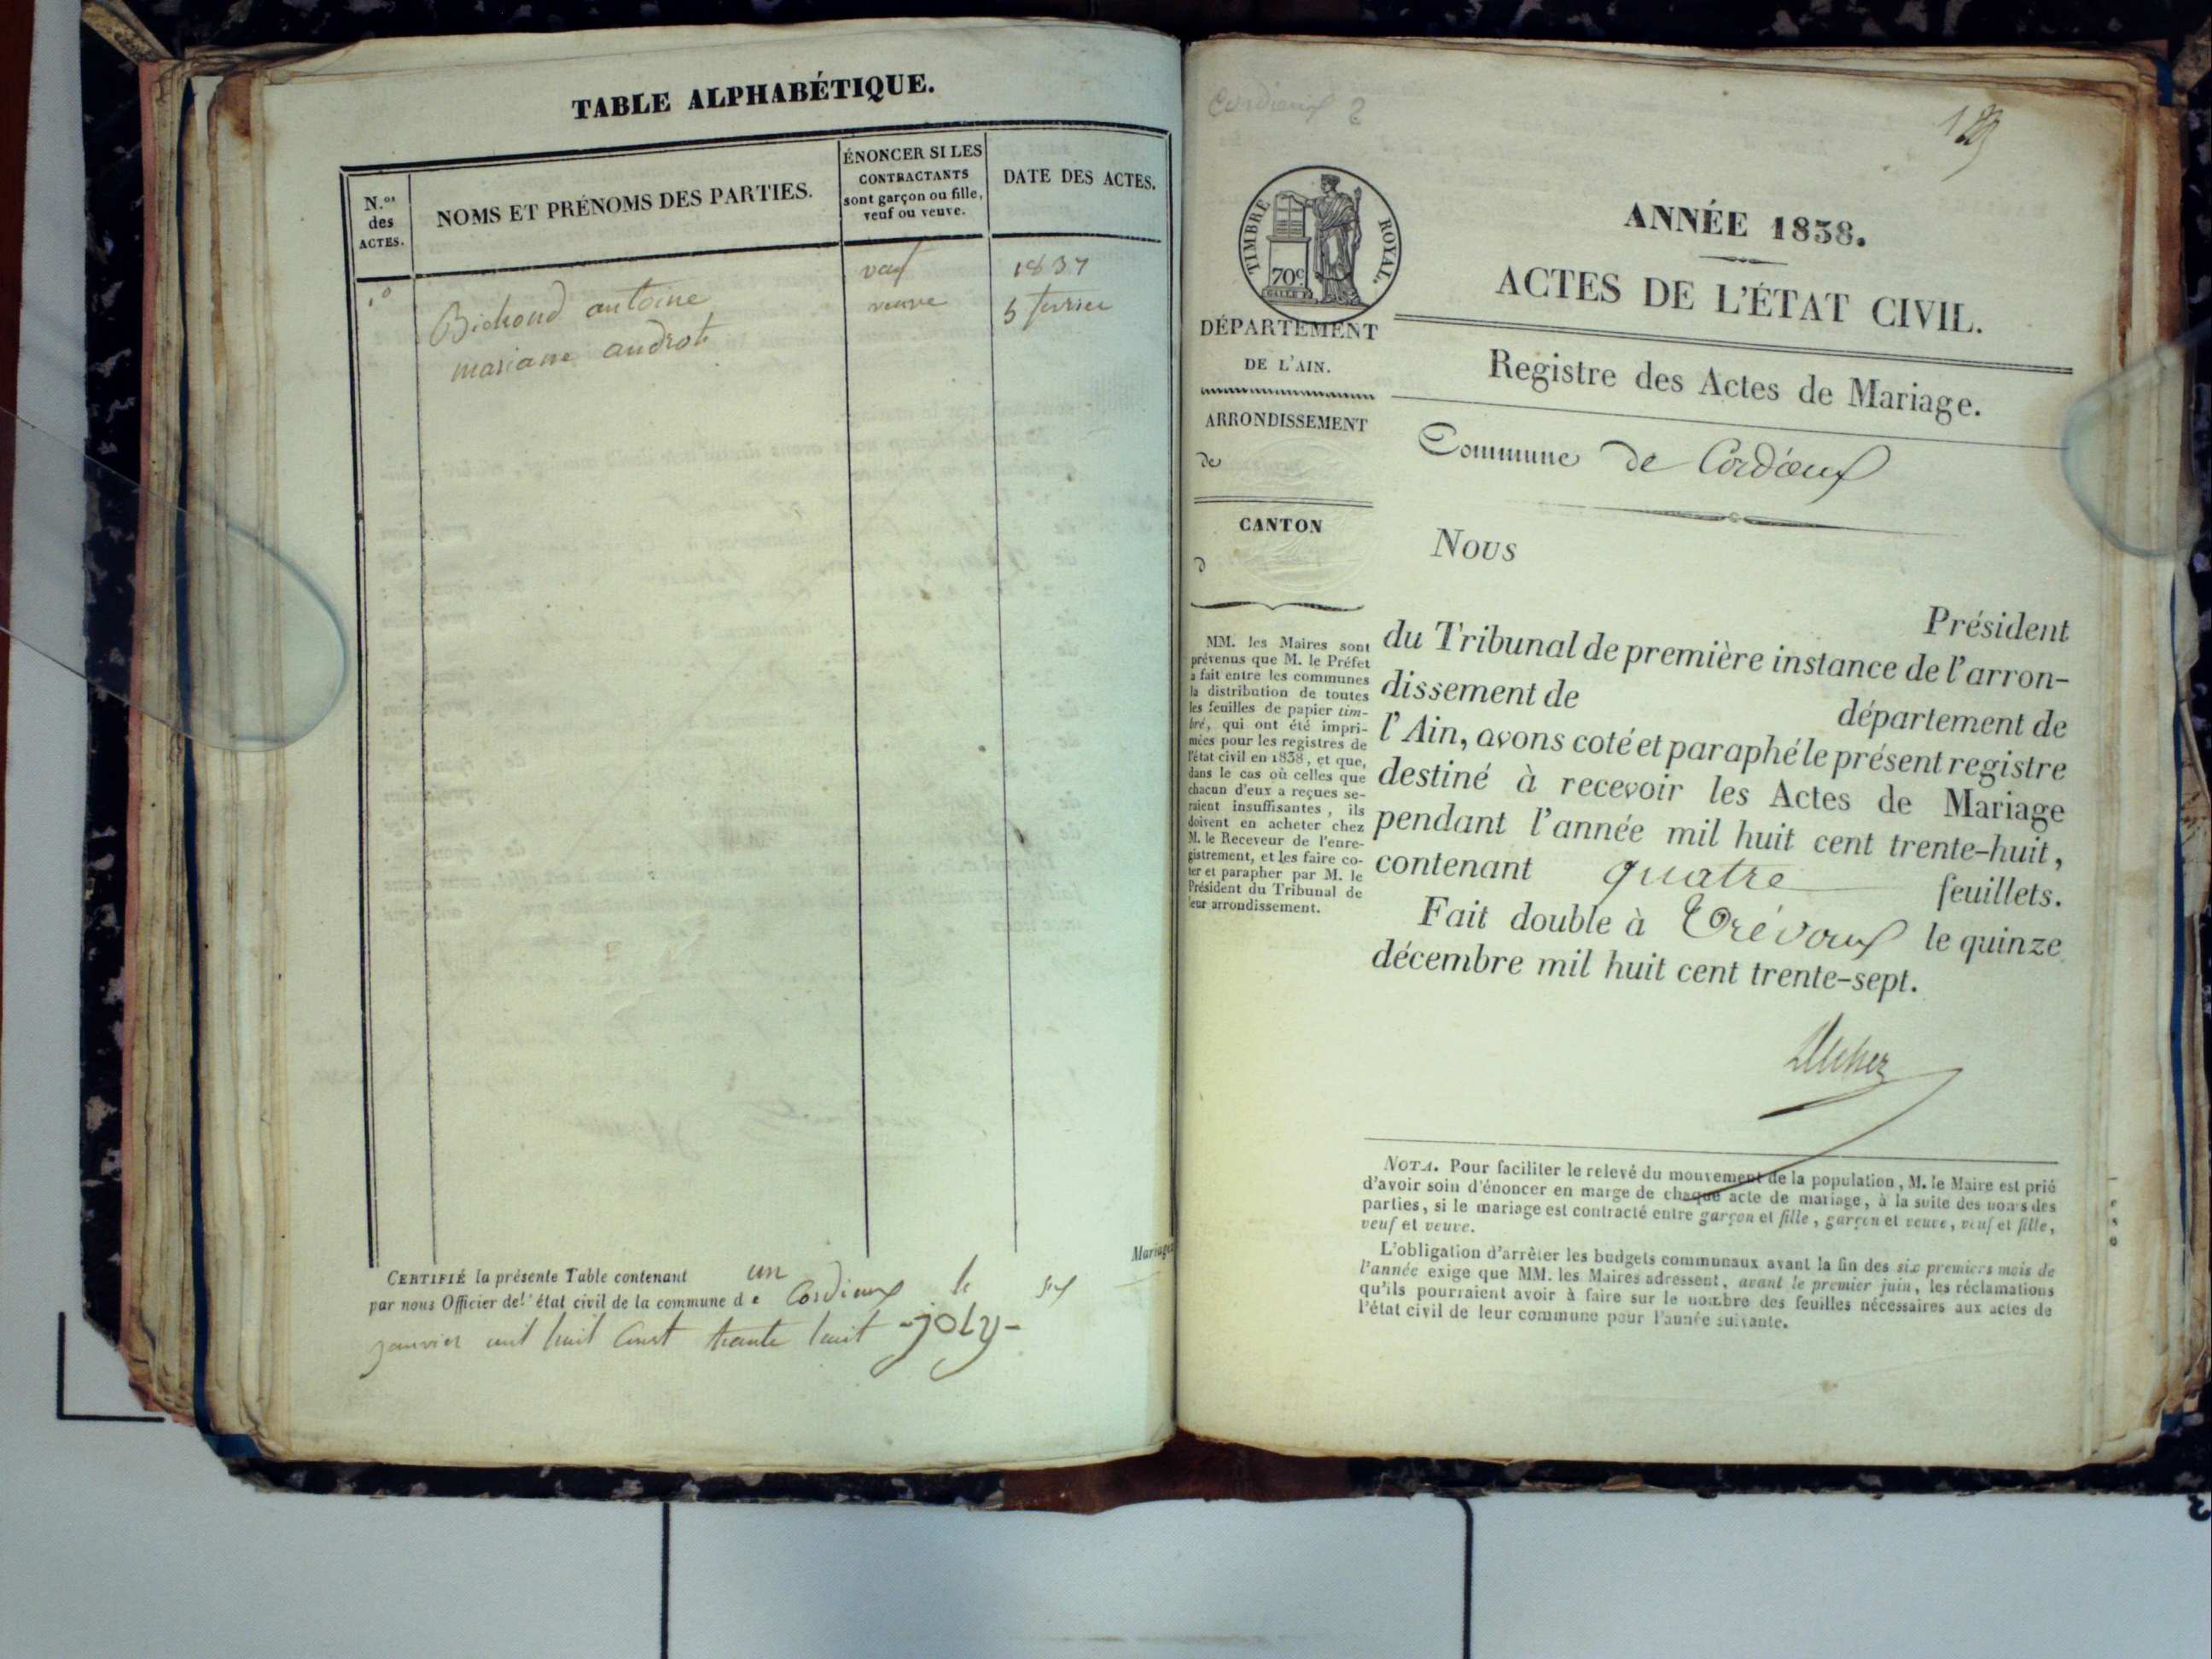 TABLE ALPHABÉTIQUE.
N.os
des
ACTES.
NOMS ET PRÉNOMS DES PARTIES.
ÉNONCER SI LES
CONTRACTANTS
sont garçon ou fille,
veuf ou veuve.
DATE DES ACTES.
1o
Bichond antoine
mariane audrot
veuf
veuve
1837
5 fevrier
Mariages
CERTIFIÉ la présente Table contenant un
par nous Officier de l'état civil de la commune de Cordieux le
janvier mil huit Cent trante huit -joly-
Cordieux 2
TIMBRE ROYAL.
70c
DÉPARTEMENT
DE L'AIN.
ARRONDISSEMENT
de
CANTON
d
MM. les Maires sont
prévenus que M. le Préfet
a fait entre les communes
la distribution de toutes
les feuilles de papier tim-
bré, qui ont été impri-
mées pour les registres de
l'état civil en 1838, et que,
dans le cas où celles que
chacun d'eux a reçues se-
raient insuffisantes, ils
doivent en acheter chez
M. le Receveur de l'enre-
gistrement, et les faire co-
ter et parapher par M. le
Président du Tribunal de
leur arrondissement.
ANNÉE 1838.
ACTES DE L'ÉTAT CIVIL.
Registre des Actes de Mariage.
Commune de Cordieux
Nous
Président
du Tribunal de première instance de l'arron-
dissement de département de
l'Ain, avons coté et paraphé le présent registre
destiné à recevoir les Actes de Mariage
pendant l'année mil huit cent trente-huit,
contenant quatre feuillets.
Fait double à Trévoux le quinze
décembre mil huit cent trente-sept.
NOTA. Pour faciliter le relevé du mouvement de la population, M. le Maire est prié
d'avoir soin d'énoncer en marge de chaque acte de mariage, à la suite des noms des
parties, si le mariage est contracté entre garçon et fille, garçon et veuve, veuf et fille,
veuf et veuve.
L'obligation d'arrêter les budgets communaux avant la fin des six premiers mois de
l'année exige que MM. les Maires adressent, avant le premier juin, les réclamations
qu'ils pourraient avoir à faire sur le nombre des feuilles nécessaires aux actes de
l'état civil de leur commune pour l'année suivante.